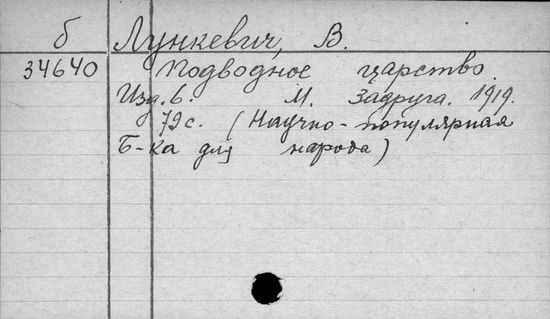 б Лункевич, В.
34640 Подводное царство.
Изд. 6. М. Задруга. 1919.
79 с. (Научно-популярная
Б-ка для народа)